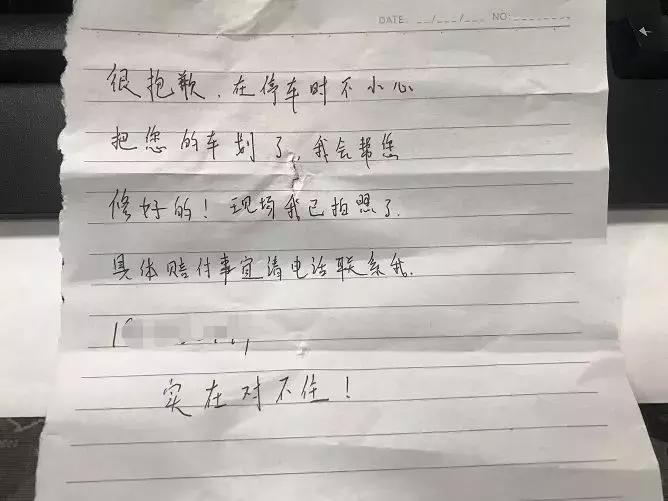 DATE: __/___/___ NO:______
很抱歉，在停车时不小心
把您的车划了，我会帮您
修好的！现场我已拍照了.
具体赔付事宜请电话联系我.
1
实在对不住！